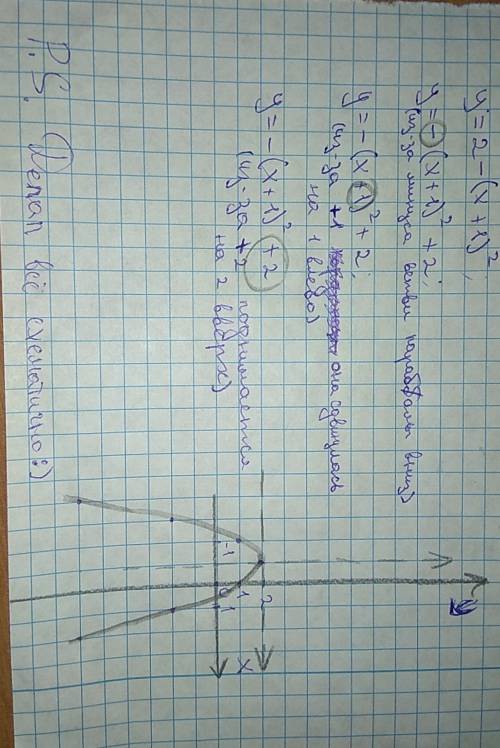 y = 2 - (x+1)²;
y = - (x+1)² + 2;
(из-за минуса ветви параболы вниз)
y = - (x+1)² + 2;
(из-за +1 она сдвинулась
на 1 влево)
y = - (x+1)² + 2
(из-за +2 поднимается
на 2 вверх)
P.S. Делал всё схематично:)
y
2
1
-1
0
1
x